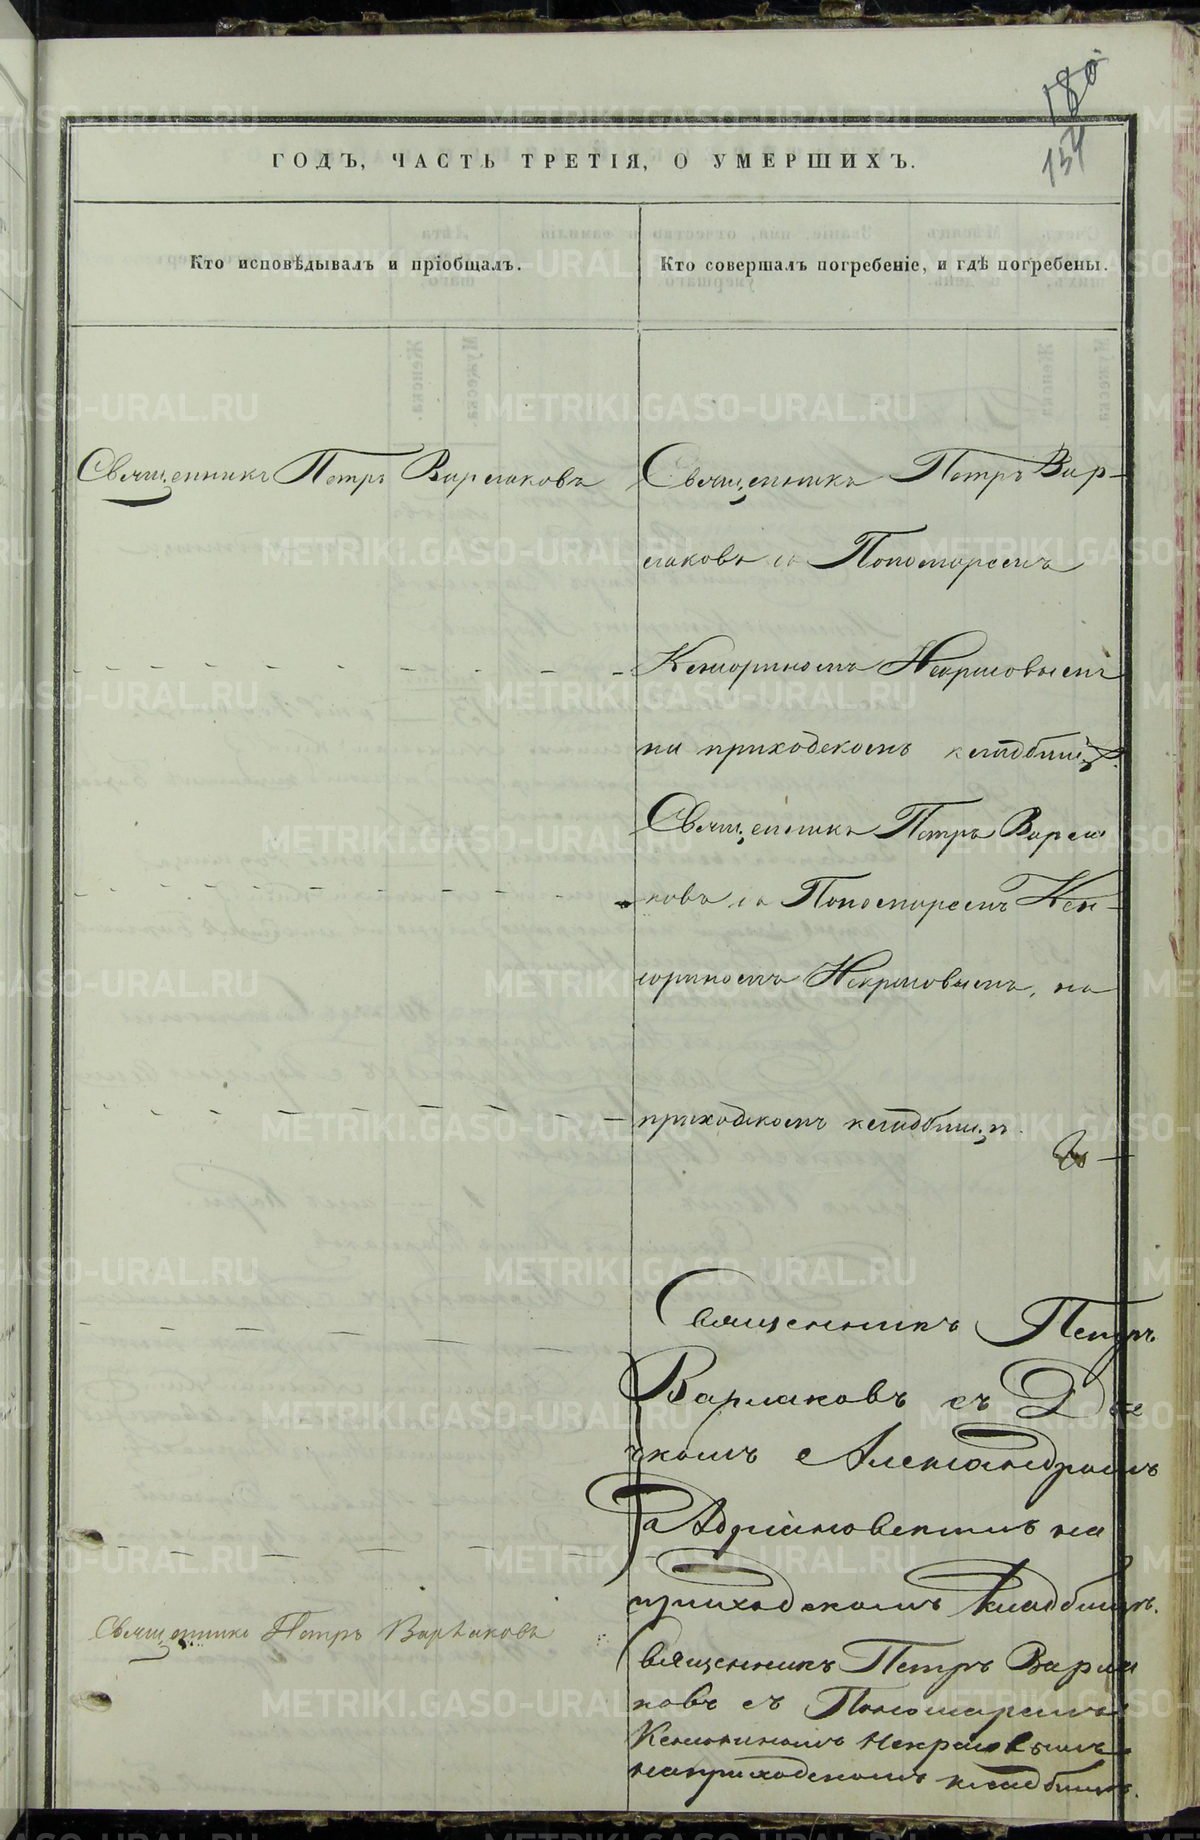 180
154
ГОДЪ, ЧАСТЬ ТРЕТІЯ, О УМЕРШИХЪ.
Кто исповѣдывалъ и пріобщалъ.
Кто совершалъ погребеніе, и гдѣ погребены.
Священникъ Петръ Варлаковъ
Священникъ Петръ Вар-
лаковъ съ Пономаремъ
Кенсориномъ Некрасовымъ
на приходскомъ кладбищѣ.
Священникъ Петръ Варла
ковъ съ Пономаремъ Кен-
сориномъ Некрасовымъ, на
приходскомъ кладбищѣ.
Священникъ Петръ
Варлаковъ съ Дья
чкомъ Александромъ
Адріановскимъ на
приходскомъ кладбищѣ.
Священникъ Петръ Варлаковъ
Священникъ Петръ Варла
ковъ съ Пономаремъ
Кенсориномъ Некрасовымъ
на приходскомъ кладбищѣ.
METRIKI.GASO-URAL.RU